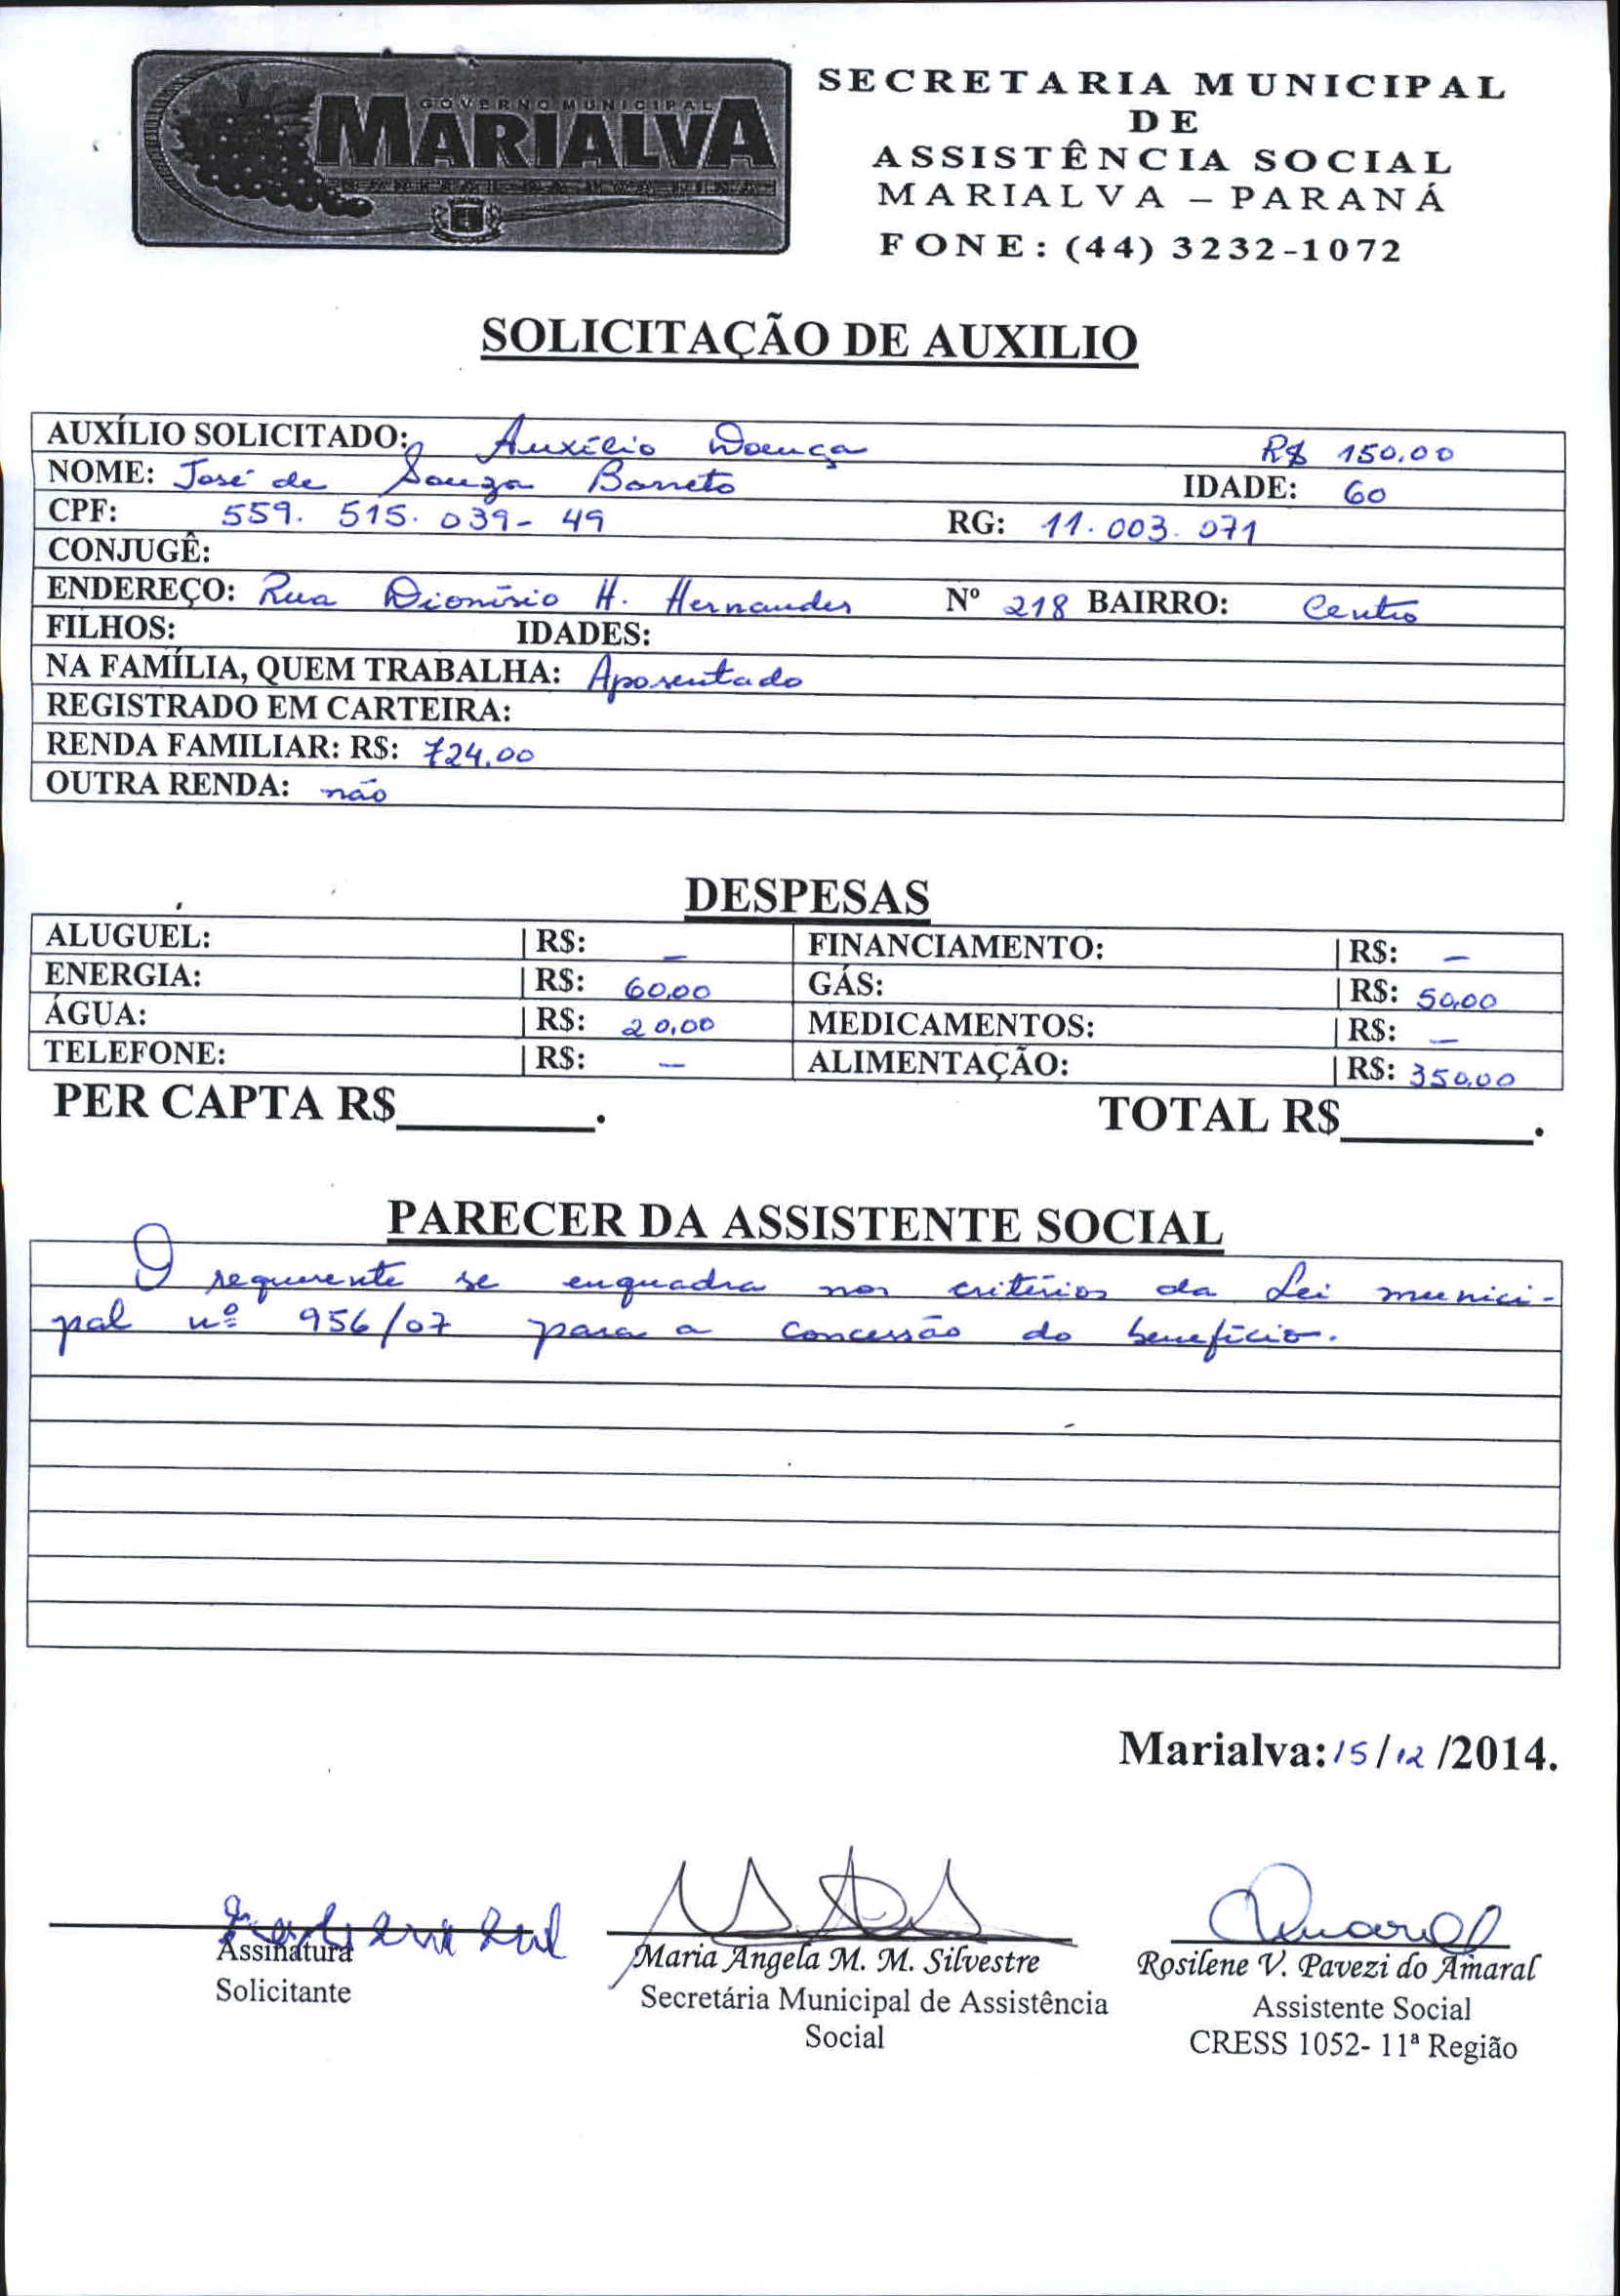 GOVERNO MUNICIPAL
MARIALVA
SECRETARIA MUNICIPAL
DE
ASSISTÊNCIA SOCIAL
MARIALVA – PARANÁ
FONE: (44) 3232-1072
SOLICITAÇÃO DE AUXILIO
AUXÍLIO SOLICITADO: Auxílio Doença R$ 150,00
NOME: José de Souza Barreto IDADE: 60
CPF: 559. 515. 039- 49 RG: 11. 003. 071
CONJUGÊ:
ENDEREÇO: Rua Dionísio H. Hernandes Nº 218 BAIRRO: Centro
FILHOS: IDADES:
NA FAMÍLIA, QUEM TRABALHA: Aposentado
REGISTRADO EM CARTEIRA:
RENDA FAMILIAR: R$: 724,00
OUTRA RENDA: não
DESPESAS
ALUGUEL: | R$: – FINANCIAMENTO: | R$: –
ENERGIA: | R$: 60,00 GÁS: | R$: 50,00
ÁGUA: | R$: 20,00 MEDICAMENTOS: | R$: –
TELEFONE: | R$: – ALIMENTAÇÃO: | R$: 350,00
PER CAPTA R$________. TOTAL R$________.
PARECER DA ASSISTENTE SOCIAL
O requerente se enquadra nos critérios da Lei munici-
pal nº 956/07 para a concessão do benefício.
Marialva: 15/12/2014.
Assinatura
Solicitante
Maria Angela M. M. Silvestre
Secretária Municipal de Assistência
Social
Rosilene V. Pavezi do Amaral
Assistente Social
CRESS 1052- 11ª Região